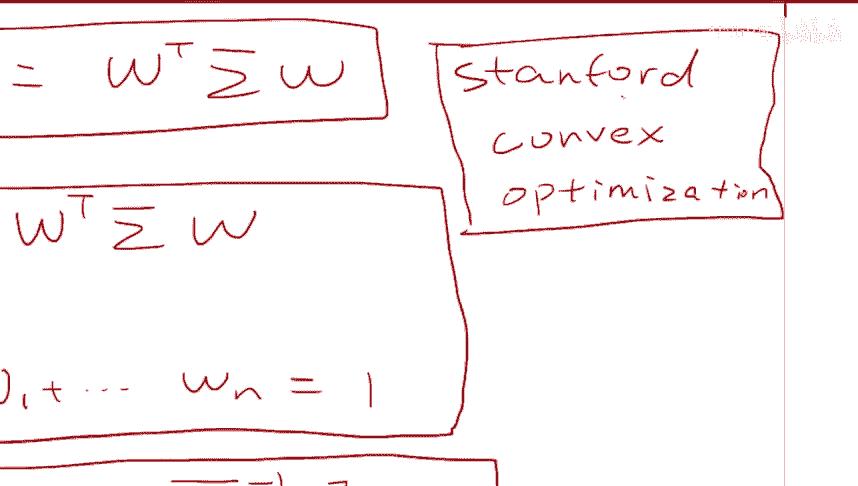 = W^T Σ W
stanford
convex
optimization
W^T Σ W
w_1 + ... w_n = 1